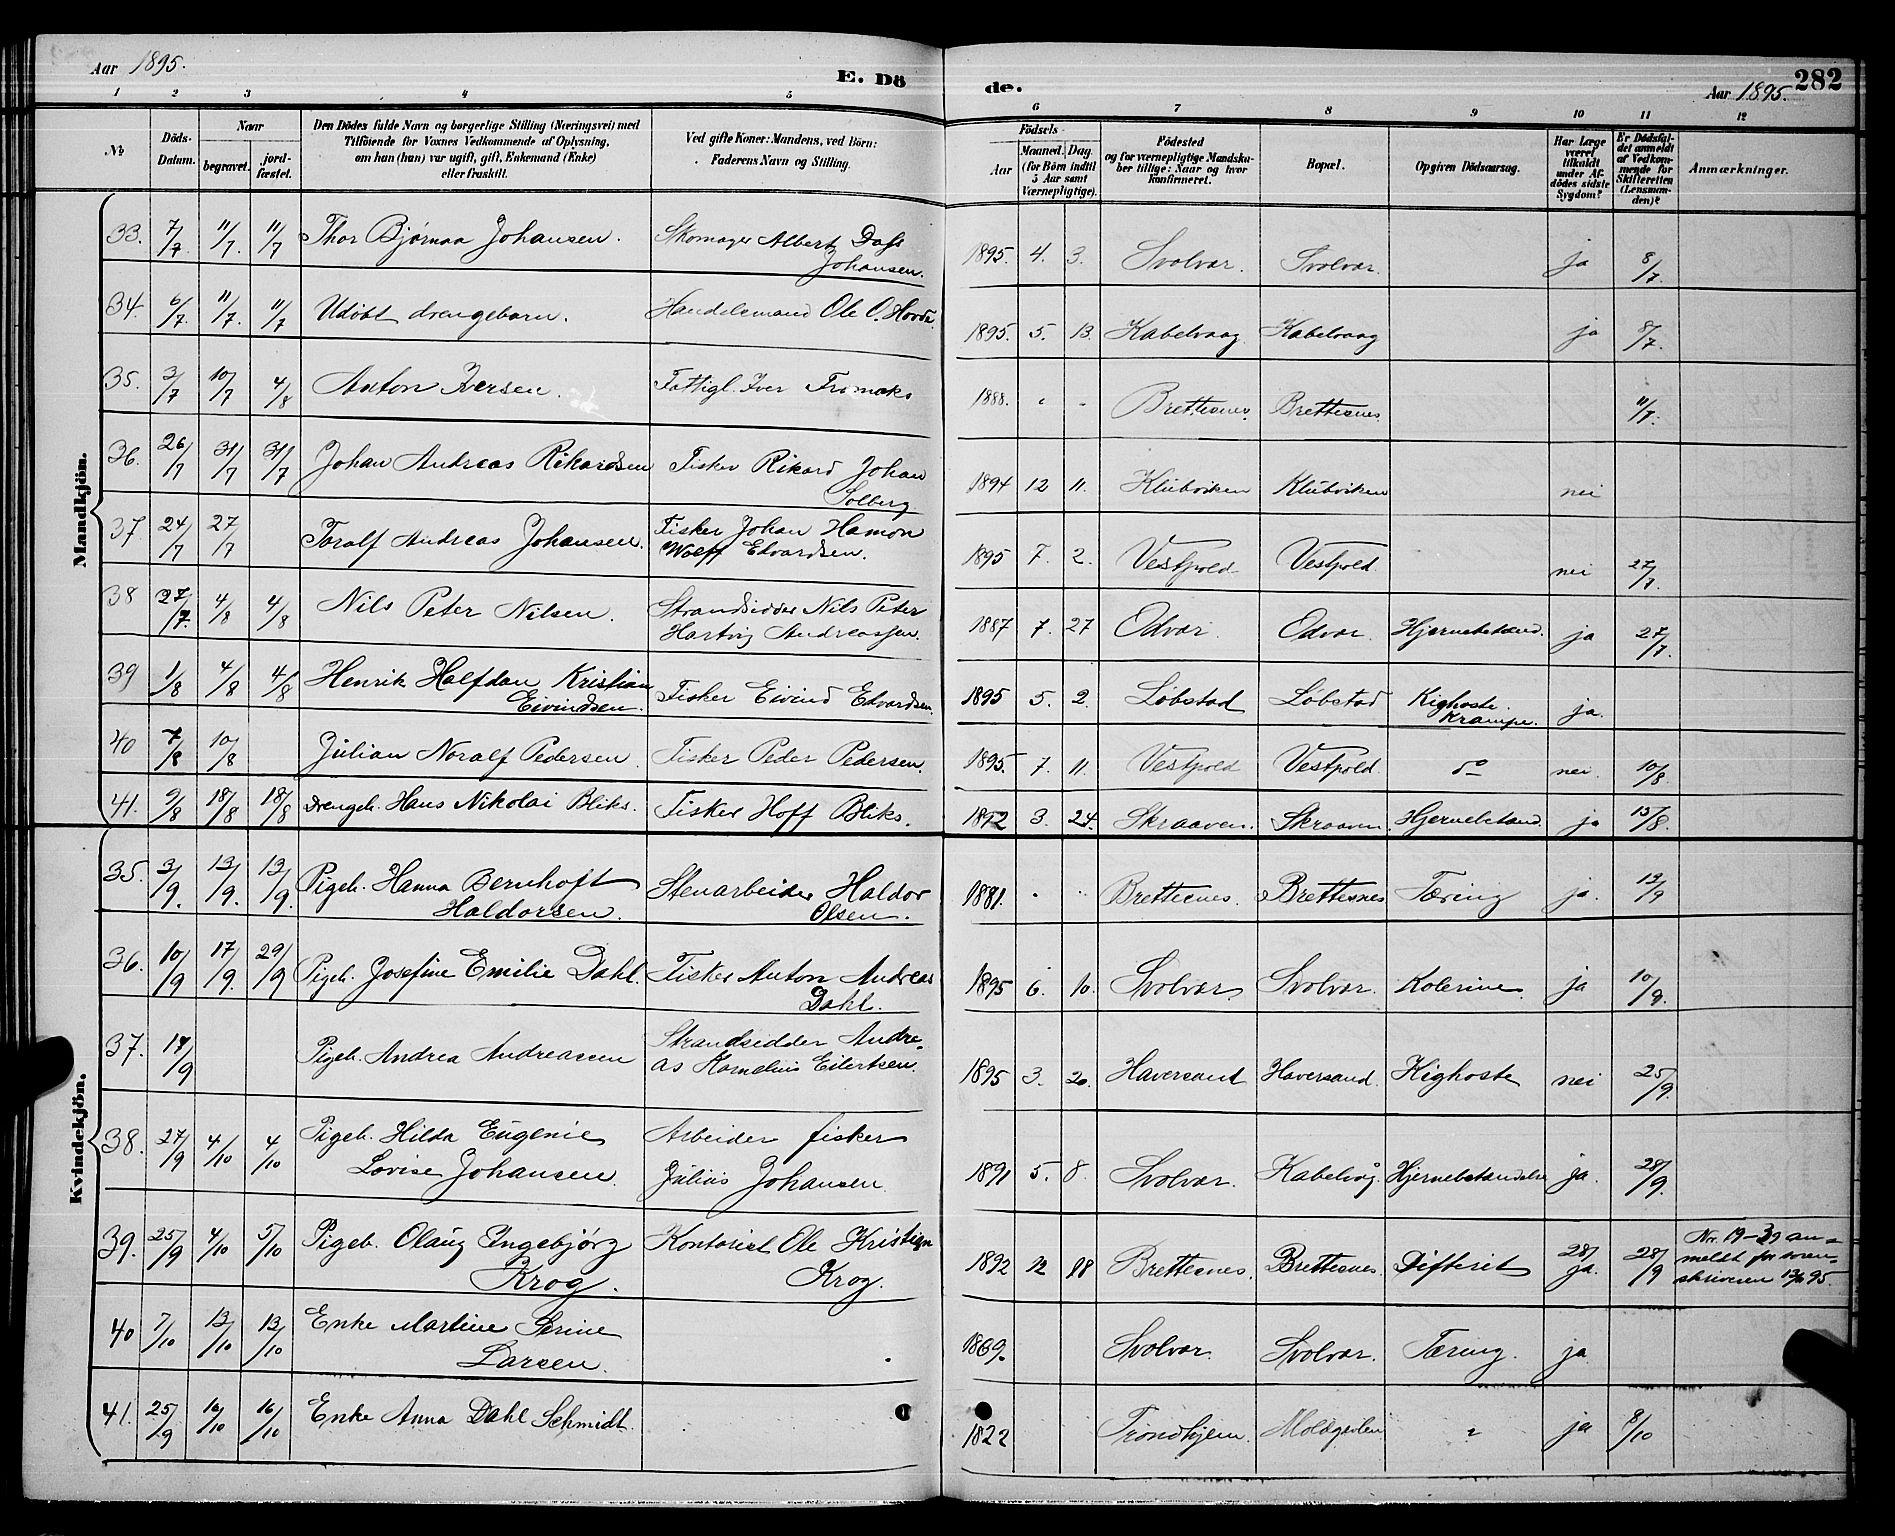 Aar 1895. E. Dö de. Aar 1895. 282
1 2 3 4 5 6 7 8 9 10 11 12
№ Döds-Datum. Naar begravet. jordfæstet. Den Dödes fulde Navn og borgerlige Stilling (Næringsvei) med Tilföiende for Voxnes Vedkommende af Oplysning, om han (hun) var ugift, gift, Enkemand (Enke) eller fraskilt. Ved gifte Koner: Mandens, ved Börn: Faderens Navn og Stilling. Födsels- Aar Maaned. Dag (for Börn indtil 5 Aar samt Værnepligtige). Födested og for værnepligtige Mandskaber tillige: Naar og hvor konfirmeret. Bopæl. Opgiven Dödsaarsag. Har Læge været tilkaldt under Afdödes sidste Sygdom? Er Dödsfaldet anmeldt af Vedkommende for Skifteretten (Lensmanden)? Anmærkninger.
Mandkjön.
33. 7/7 11/7. 11/7 Thor Bjørnaa Johansen. Skomager Albert Dass Johansen. 1895. 4. 3. Svolvær. Svolvær. ja 8/7
34. 6/7. 11/7. 11/7 Udöbt drengebarn. Handelsmand Ole O. Hovde 1895. 5. 13. Kabelvaag Kabelvaag ja 8/7.
35. 3/7 10/7 4/8 Anton Iversen. Fattigl. Iver 1888. " - Brettesnes Brettesnes. 11/7.
36. 26/7 31/7 31/7 Johan Andreas Rikardsen Fisker Rikard Johan Solberg 1894 12 11. Klubviken Klubviken nei
37. 24/7 27/7 Toralf Andreas Johansen. Fisker Johan Hamon Wolff Edvardsen. 1895 7. 2. Vestpold Vestpold nei 27/7.
38 27/7. 4/8 4/8 Nils Peter Nilsen. Strandsidder Nils Peter Hartvig Andreassen. 1887 7. 27 Odvær. Odvær. Hjernebetænd. ja 27/7.
39 1/8 4/8 4/8 Henrik Halfdan Kristian Eivindsen. Fisker Eivind Edvardsen. 1895 5. 2. Löbstad Löbstad Kighoste. Krampe. ja.
40 7/8 10/8 Julian Noralf Pedersen. Fisker Peder Pedersen. 1895. 7. 11. Vestpold Vestpold. do nei. 10/8.
41. 9/8 18/8 18/8 Drengeb. Hans Nikolai Bliks. Fisker Hoff Bliks. 1892 3. 24. Skraaven. Skraaven Hjernebetænd. ja 15/8.
Kvindekjön.
35. 3/9. 13/9. 13/9. Pigeb. Hanna Bernhoft Haldorsen. Stenarbeider Haldor Olsen. 1881. " " Brettesnes. Brettesnes Tæring ja. 13/9
36. 10/9 17/9. 29/9 Pigeb. Josefine Emilie Dahl. Fisker Anton Andreas Dahl. 1895 6. 10. Svolvær Svolvær. Kolerine. ja 10/9.
37. 17/9 Pigeb. Andrea Andreasen Strandsidder Andreas Kornelius Eilertsen. 1895 3. 20. Haversand Haversand. Kighoste nei 25/9.
38. 27/9 4/10 4/10 Pigeb. Hilda Eugenie Lovise Johansen. Arbeider fisker Julius Johansen 1891 5. 8. Svolvær. Kabelvåg. Hjernebetændelse ja. 28/9.
39. 25/9 4/10 5/10 Pigeb. Olaug Ingebjörg Krog. Kontorist Ole Kristian Krog. 1892 12 18 Brettesnes. Brettesnes. Difterit 28/ ja. 28/9 Nr. 19-39 anmeldt for sorenskriveren 95.
40 7/10 13/10 13/10 Enke Martine Serine Larsen. 1869. Svolvær. Svolvær. Tæring. ja
41. 25/9 16/10 16/10 Enke Anna Dahl Schmidt. 1822 Trondhjem. " ja 9/10